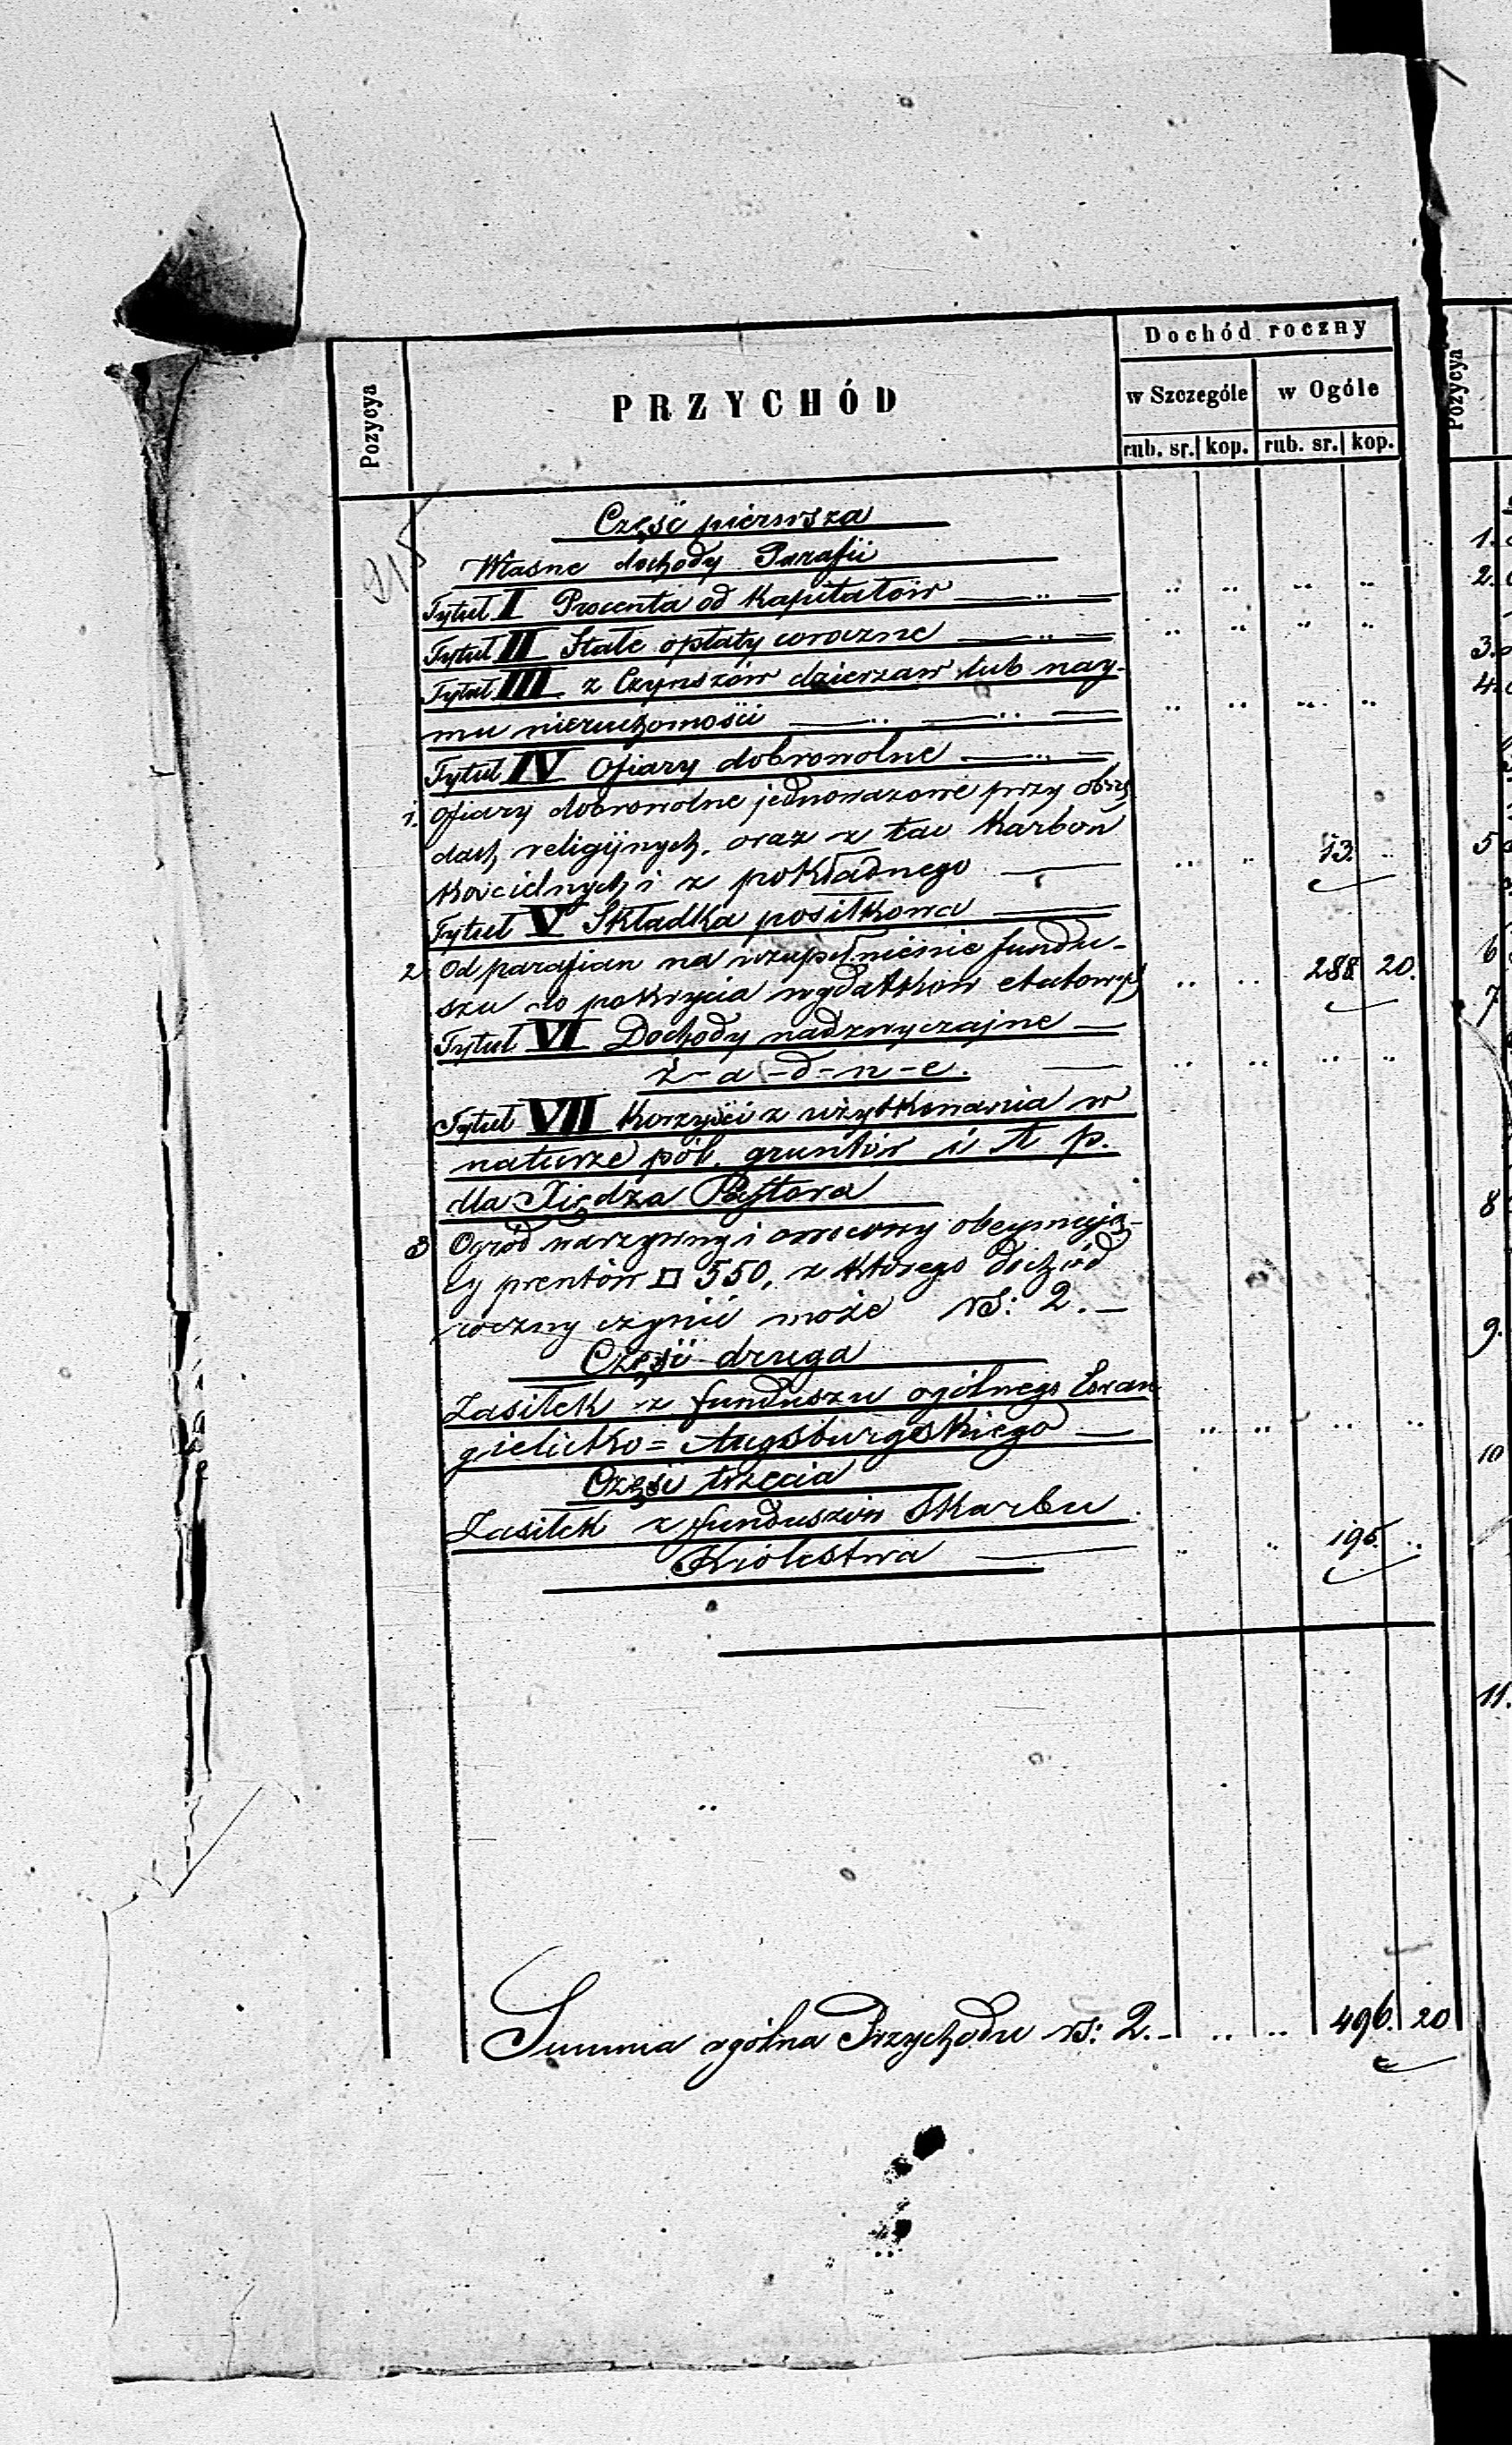 Dochód roczny
Pozycya
PRZYCHÓD
w Szczególe
w Ogóle
Pozycya
rub. sr. kop. rub. sr. kop.
Część pierwsza
Własne dochody Parafii
Tytuł I Procenta od Kapitałów
Tytuł II Stałe opłaty coroczne
Tytuł III z Czynszów dzierzaw lub nay-
mu nieruchomości
Tytuł IV Ofiary dobrowolne
1. Ofiary dobrowolne jednorazowe przy obrzę
dach religijnych, oraz z tac Karbon
Kościelnych i z pokładnego 13.
Tytuł V Składka posiłkowa
2. Od parafian na uzupełnienie fundu-
szu do pokrycia wydatków etatowych 288. 20.
Tytuł VI Dochody nadzwyczajne
Ż-a-d-n-e.
Tytuł VII Korzyści z użytkowania w
naturze pól, gruntów i t. p.
dla Xiędza Pastora
3 Ogród warzywny i owocowy obeymują-
cy prentów □ 550, z którego dochód
roczny czynić może rs: 2.—
Część druga
Zasiłek z funduszu ogólnego Ewan
gielicko = Augsburgskiego
Część trzecia
Zasiłek z funduszów Skarbu
Królestwa 195.
Summa ogólna Przychodu rs: 2.- 496. 20
1.
2.
3.
4.
5
6
7
8
9.
10
11.